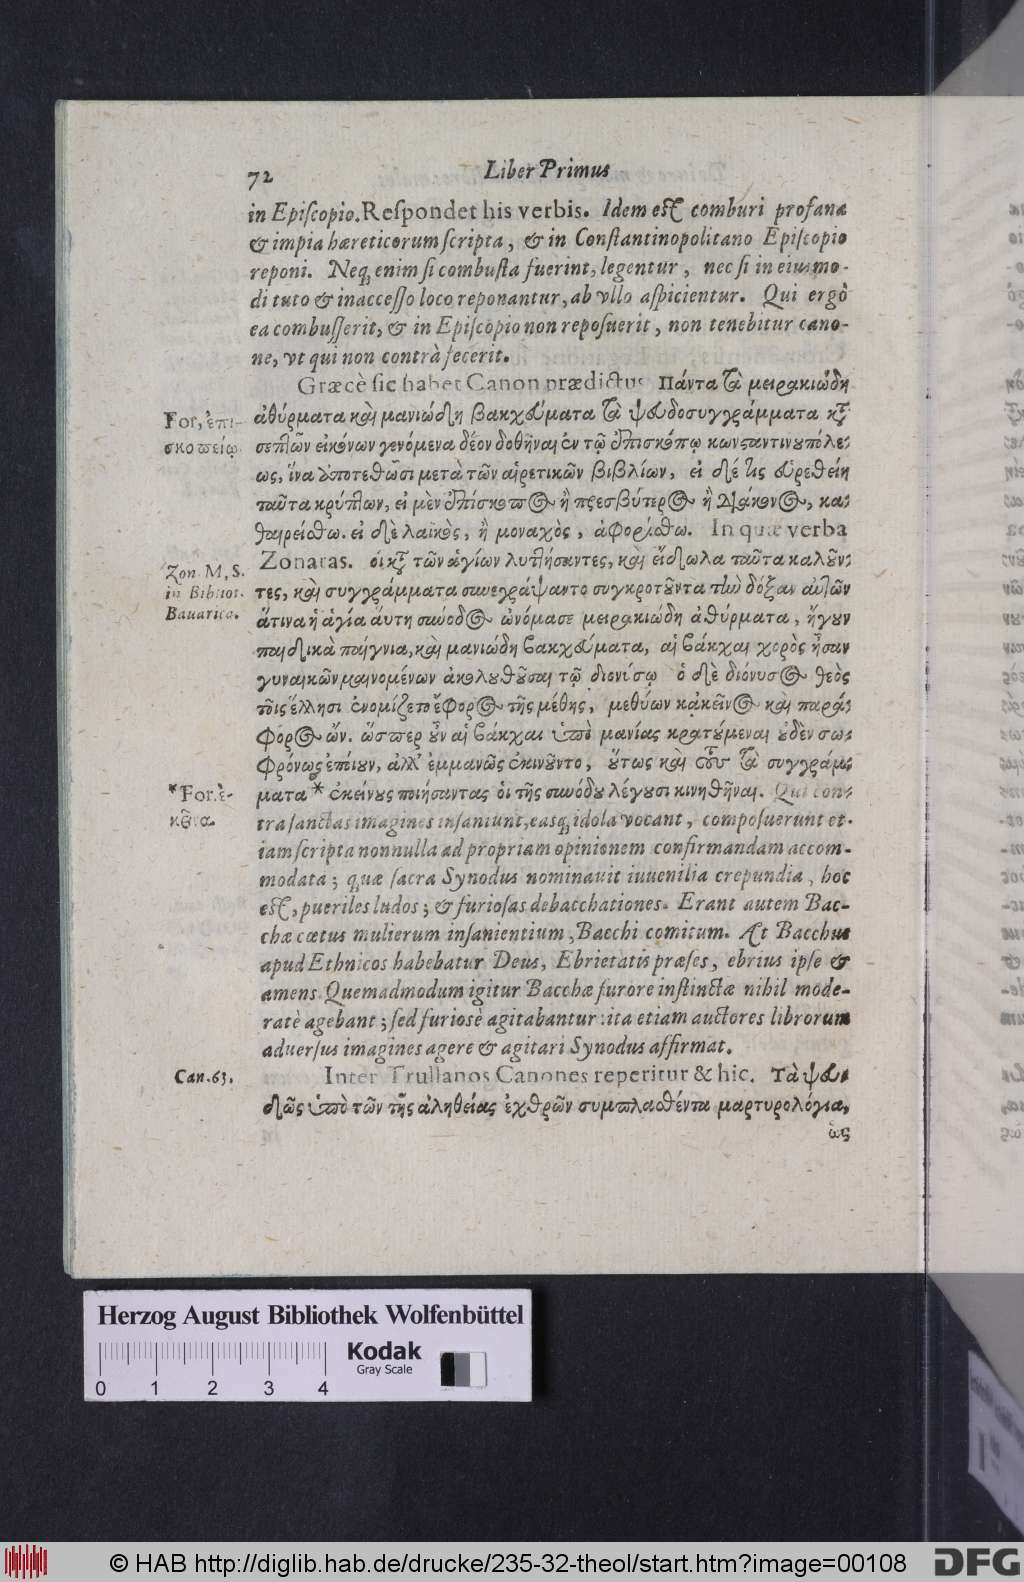 72 Liber Primus
in Episcopio. Respondet his verbis. Idem est comburi profana
& impia hæreticorum scripta, & in Constantinopolitano Episcopio
reponi. Neq; enim si combusta fuerint, legentur, nec si in eiusmo-
di tuto & inaccesso loco reponantur, ab vllo aspicientur. Qui ergò
ea combusserit, & in Episcopio non reposuerit, non tenebitur cano-
ne, vt qui non contrà fecerit.
Græcè sic habet Canon prædictus Πάντα τὰ μειρακιώδη
For. ἐπι-
ἀθύρματα καὶ μανιώδη βακχεύματα τὰ ψευδοσυγγράμματα κτ̃
σκοπείῳ.
σεπτῶν εἰκόνων γενόμενα δέον δοθῆναι ἐν τῷ ἐπισκόπῳ κωνσταντινουπόλε-
ως, ἵνα ἀποτεθῶσι μετὰ τῶν αἱρετικῶν βιβλίων, εἰ δέ τις εὑρεθείη
ταῦτα κρύπτων, εἰ μὲν ἐπίσκοπος ἢ πρεσβύτερος ἢ διάκονος, κα-
θαιρείσθω. εἰ δὲ λαϊκὸς, ἢ μοναχὸς, ἀφορίσθω. In quæ verba
Zonaras. οἱ κτ̃ τῶν ἁγίων λυττήσαντες, καὶ εἴδωλα ταῦτα καλοῦν-
Zon. M. S.
in Bibliot.
Bauarica.
τες, καὶ συγγράμματα συνεγράψαντο συγκροτοῦντα τὴν δόξαν αὐτῶν
ἅτινα ἡ ἁγία αὕτη σύνοδος ὠνόμασε μειρακιώδη ἀθύρματα, ἤγουν
παιδικὰ παίγνια, καὶ μανιώδη βακχεύματα, αἱ βάκχαι χορὸς ἦσαν
γυναικῶν μαινομένων ἀκολουθοῦσαι τῷ διονύσῳ ὁ δὲ διόνυσος θεὸς
τοῖς ἕλλησι ἐνομίζετο ἔφορος τῆς μέθης, μεθύων κἀκεῖνος καὶ παρά-
φορος ὤν. ὥσπερ οὖν αἱ βάκχαι ὑπὸ μανίας κρατούμεναι οὐδὲν σω-
φρόνως ἐποίουν, ἀλλ' ἐμμανῶς ἐκινοῦντο, οὕτως καὶ τοὺς τὰ συγγράμ-
*For. ἐ-
κεῖνα.
ματα * ἐκείνους ποιήσαντας οἱ τῆς συνόδου λέγουσι κινηθῆναι. Qui con-
tra sanctas imagines insaniunt, easq; idola vocant, composuerunt et-
iam scripta nonnulla ad propriam opinionem confirmandam accom-
modata; quæ sacra Synodus nominauit iuuenilia crepundia, hoc
est, pueriles ludos; & furiosas debacchationes. Erant autem Bac-
chæ cœtus mulierum insanientium, Bacchi comitum. At Bacchus
apud Ethnicos habebatur Deus, Ebrietatis præses, ebrius ipse &
amens. Quemadmodum igitur Bacchæ furore instinctæ nihil mode-
ratè agebant; sed furiosè agitabantur: ita etiam auctores librorum
aduersus imagines agere & agitari Synodus affirmat.
Can. 63.
Inter Trullanos Canones reperitur & hic. Τὰ ψευ-
δῶς ὑπὸ τῶν τῆς ἀληθείας ἐχθρῶν συμπλασθέντα μαρτυρολόγια,
ὡς
Herzog August Bibliothek Wolfenbüttel
Kodak
Gray Scale
0 1 2 3 4
© HAB http://diglib.hab.de/drucke/235-32-theol/start.htm?image=00108
DFG